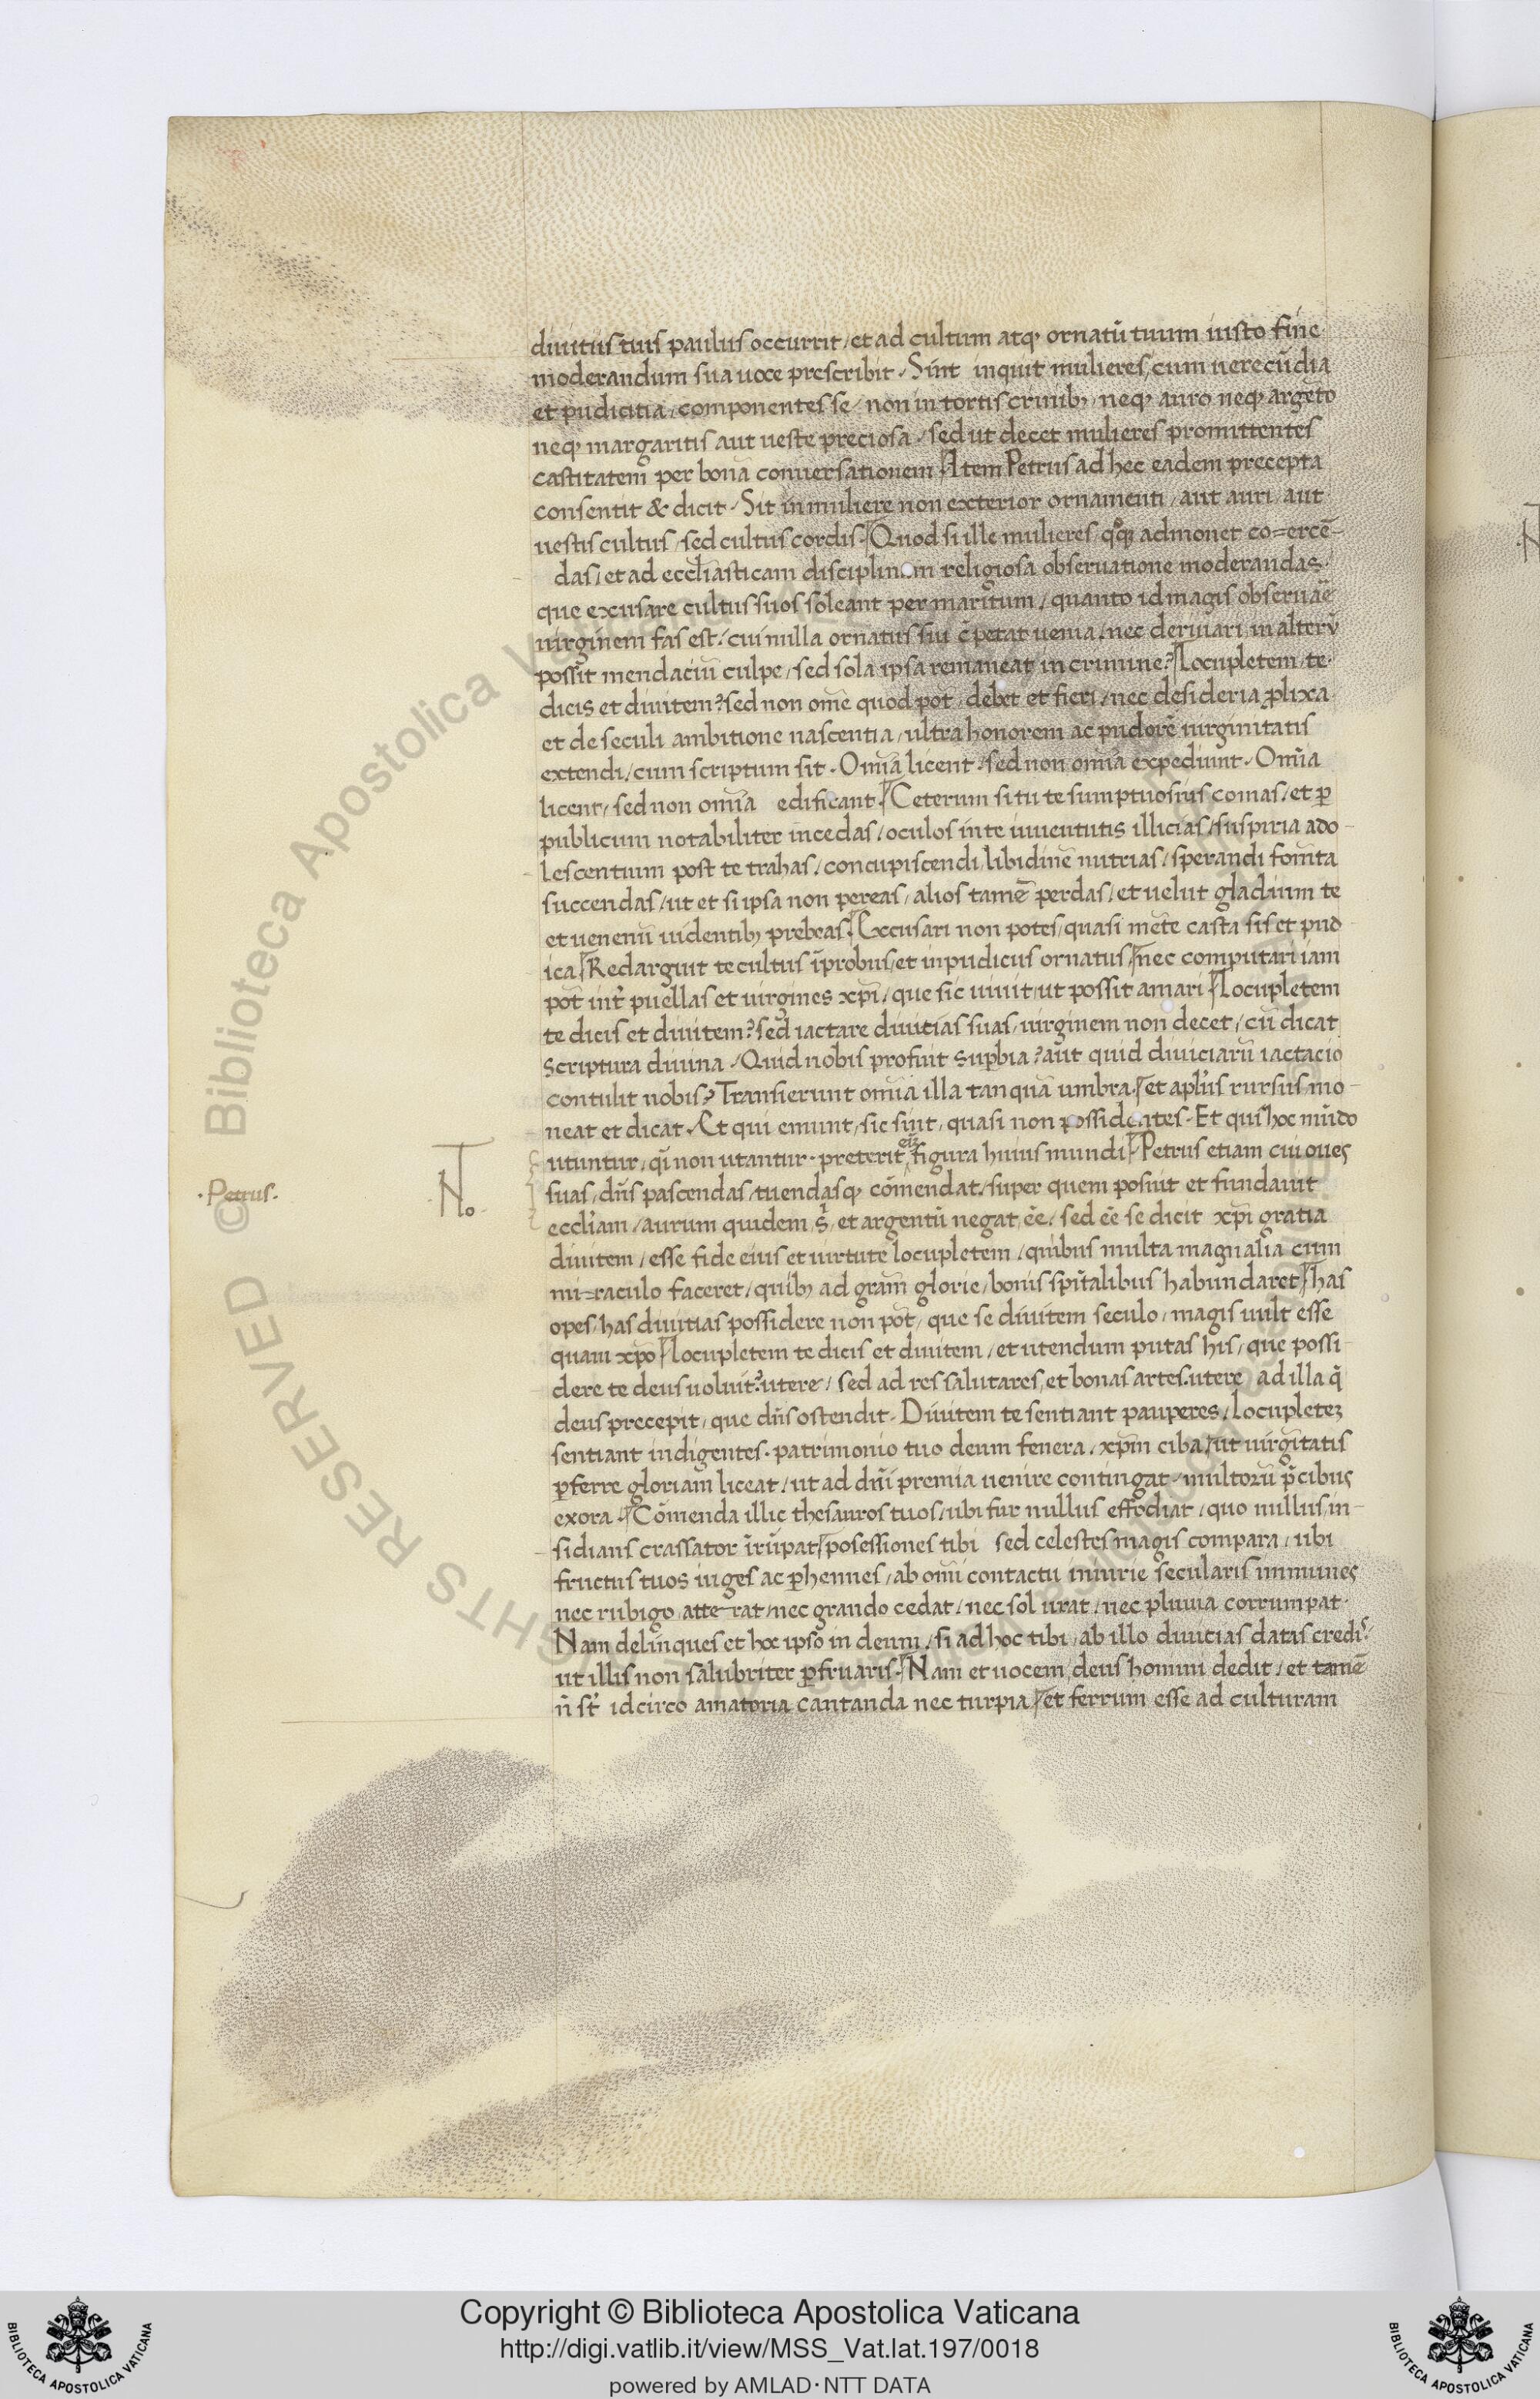 diuitiis tuis paulus occurrit, et ad cultum atq; ornatū tuum iusto fine
moderandum sua uoce prescribit. Sint inquit mulieres, cum uerecūdia
et pudicitia, componentes se, non in tortis crinib;, neq; auro neq; argēto
neq; margaritis aut ueste preciosa, sed ut decet mulieres promittentes
castitatem per bonā conuersationem Item Petrus ad hec eadem precepta
consentit & dicit. Sit in muliere non exterior ornamenti, aut auri, aut
uestis cultus, sed cultus cordis. Quod si ille mulieres, qͦq; admonet co=ercē-
das, et ad eccliasticam disciplinam religiosa obseruatione moderandas,
que excusare cultus suos soleant per maritum, quanto id magis obseruāe
uirginem fas est, cui nulla ornatus sui cōpetat uenia, nec deriuari in alterū
possit mendaciū culpe, sed sola ipsa remaneat in crimine? Locupletem te
dicis et diuitem? sed non om̄e quod pōt, debet et fieri, nec desideria p̱lixa
et de seculi ambitione nascentia, ultra honorem ac pudorē uirginitatis
extendi, cum scriptum sit. Om̄ia licent, sed non om̄ia expediunt. Om̄ia
licent, sed non om̄ia edificant. Ceterum si tu te sumptuosius comas, et p̱
publicum notabiliter incedas, oculos in te iuuentutis illicias, suspiria ado-
lescentum post te trahas, concupiscendi libidinē nutrias, sperandi fom̄ta
succendas, ut et si ipsa non pereas, alios tamē perdas, et uelut gladium te
et uenenū uidentib; prebeas. Excusari non potes, quasi mēte casta sis et pud
ica Redarguit te cultus īprobus, et inpudicus ornatus, nec computari iam
pōt int̄ puellas et uirgines xp̄i, que sic uiuit, ut possit amari Locupletem
te dicis et diuitem? sed iactare diuitias suas, uirginem non decet, cū dicat
scriptura diuina. Quid nobis profuit sup̱bia? aūt quid diuiciarū iactacio
contulit nobis? Transierunt om̄ia illa tanquā umbra. et apl̄us rursus mo-
neat et dicat. Et qui emunt, sic sint, quasi non possidentes. Et qui hoc mūdo
utuntur, q̄i non utantur. preterit eīz figura huius mundi Petrus etiam cui oues
suas, dn̄s pascendas, tuendasq; cōmendat, super quem posuit et fundauit
eccl̄iam, aurum quidem, s, et argentū negat, ēe, sed ēe se dicit xp̄i gratia
diuitem, esse fide eius et uirtute locupletem, quibus multa magnalia cum
mi=raculo faceret, quib; ad grām glorie, bonis spīͥtalibus habundaret, has
opes, has diuitias possidere non pōt, que se diuitem seculo, magis uult esse
quam xp̄o Locupletem te dicis et diuitem, et utendum putas his, que possi-
dere te deus uoluit? utere, sed ad res salutares, et bonas artes. utere ad illa q̄
deus precepit, que dn̄s ostendit. Diuitem te sentiant pauperes, locupletez
sentiant indigentes. patrimonio tuo deum fenera, xp̄m ciba, ut uirgītatis
p̱ferre gloriam liceat, ut ad dn̄i premia uenire contingat, multorū p̄cibus
exora. Cōmenda illic thesauros tuos, ubi fur nullus effodiat, quo nullus, in-
sidians crassator īrūpat, posessiones tibi sed celestes magis compara, ubi
fructus tuos iuges ac p̱hennes, ab om̄i contactu iniurie secularis immunes
nec rubigo atterat, nec grando cedat, nec sol urat, nec pluuia corrumpat.
Nam delinques et hoc ipso in deum, si ad hoc tibi, ab illo diuicias datas credis,
ut illis non salubriter p̱fruaris. Nam et uocem, deus homini dedit, et tamē
n̄ st̄ idcirco amatoria cantanda nec turpia, et ferrum esse ad culturam
.Petrus.
No
© Biblioteca Apostolica Vaticana
RIGHTS RESERVED
Copyright © Biblioteca Apostolica Vaticana
http://digi.vatlib.it/view/MSS_Vat.lat.197/0018
powered by AMLAD·NTT DATA
BIBLIOTECA APOSTOLICA VATICANA
BIBLIOTECA APOSTOLICA VATICANA